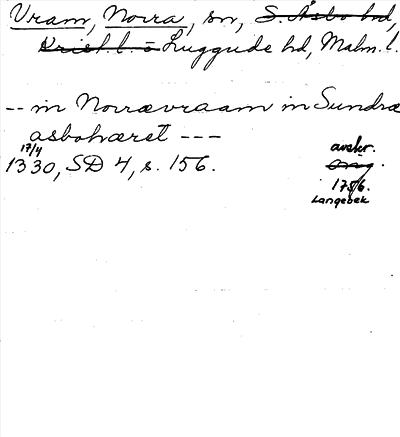 Vram, Norra, sn, S. Åsbo hd,
Krist. l. o Luggude hd, Malm. l.
-- in Norrævraam in Sundræ
asbohæret ---
17/4
1330, SD 4, s. 156.
avskr.
orig.
1756.
Langebek